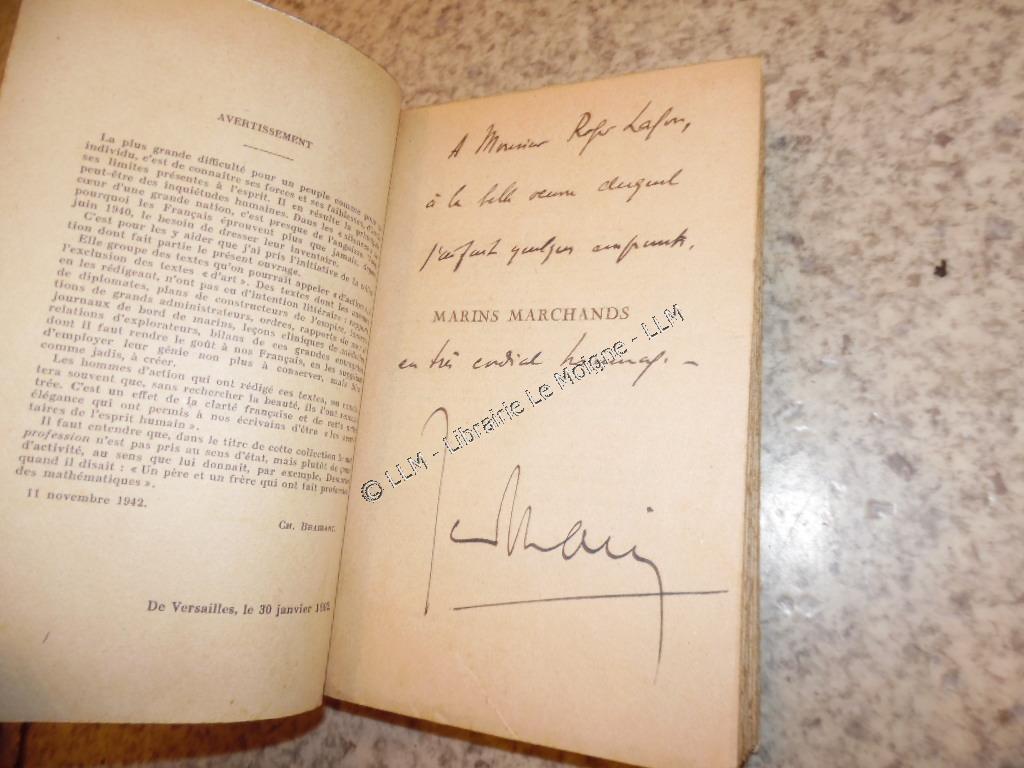 AVERTISSEMENT
La plus grande difficulté pour un peuple comme pour un
individu, c'est de connaître ses forces et ses faiblesses, d'avoir
ses limites présentes à l'esprit. Il en résulte la principale
peut-être des inquiétudes humaines. Dans les
cœur d'une grande nation, c'est presque de l'angoisse
pourquoi les Français éprouvent plus que jamais, depuis
juin 1940, le besoin de dresser leur inventaire.
C'est pour les y aider que j'ai pris l'initiative de la
tion dont fait partie le présent ouvrage.
Elle groupe des textes qu'on pourrait appeler « d'action
l'exclusion des textes « d'art ». Des textes dont les auteurs,
en les rédigeant, n'ont pas eu d'intention littéraire : rapports
de diplomates, plans de constructeurs de l'empire,
tions de grands administrateurs, ordres, rapports de
journaux de bord de marins, leçons cliniques de médecins,
relations d'explorateurs, bilans de ces grandes entreprises
dont il faut rendre le goût à nos Français, en les
d'employer leur génie non plus à conserver, mais
comme jadis, à créer.
Les hommes d'action qui ont rédigé ces textes, on
tera souvent que, sans rechercher la beauté, ils l'ont
trée. C'est un effet de la clarté française et de cette
élégance qui ont permis à nos écrivains d'être « les
taires de l'esprit humain ».
Il faut entendre que, dans le titre de cette collection le mot
profession n'est pas pris au sens d'état, mais plutôt de genre
d'activité, au sens que lui donnait, par exemple,
quand il disait : « Un père et un frère qui ont fait profession
des mathématiques ».
11 novembre 1942.
CH. BRAIBANT.
De Versailles, le 30 janvier
A Monsieur Roger Lafon,
à la belle oeuvre duquel
j'ai fait quelques emprunts,
MARINS MARCHANDS
en très cordial hommage. -
© LLM - Librairie Le Moigne - LLM